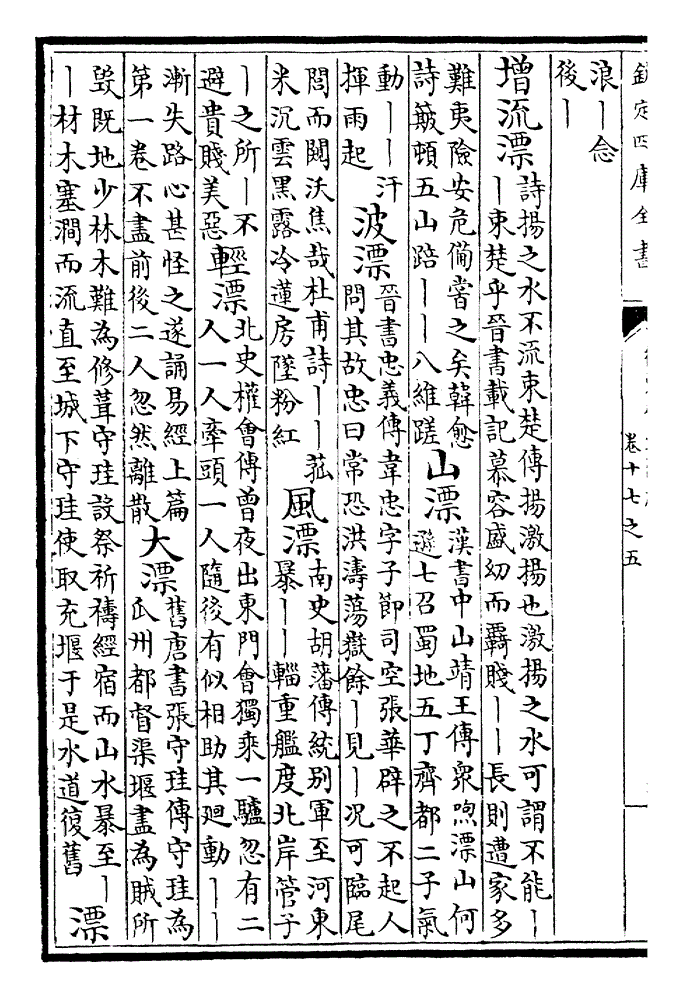 欽定四庫全書
卷十七之五
浪丨念
後丨
增流漂
詩揚之水不流束楚傳揚激揚也激揚之水可謂不能丨
丨束楚乎晉書載記慕容盛幼而羇賤丨丨長則遭家多
難夷險安危僃嘗之矣韓愈
詩簸頓五山踣丨丨八維蹉
山漂
漢書中山靖王傳衆喣漂山何
遜七召蜀地五丁齊都二子氣
動丨丨汗
揮雨起
波漂
晉書忠義傳韋忠字子節司空張華辟之不起人
問其故忠曰常恐洪濤蕩嶽餘丨見丨况可臨尾
閭而闚沃焦哉杜甫詩丨丨菰
米沉雲黑露冷蓮房墜粉紅
風漂
南史胡藩傳統别軍至河東
暴丨丨輜重艦度北岸管子
丨之所丨不
避貴賤美惡
輕漂
北史權會傳曾夜出東門會獨乘一驢忽有二
人一人牽頭一人隨後有似相助其廻動丨丨
漸失路心甚怪之遂誦易經上篇
第一卷不盡前後二人忽然離散
大漂
舊唐書張守珪傳守珪為
瓜州都督渠堰盡為賊所
毀既地少林木難為修葺守珪設祭祈禱經宿而山水暴至丨
丨材木塞澗而流直至城下守珪使取充堰于是水道復舊
漂